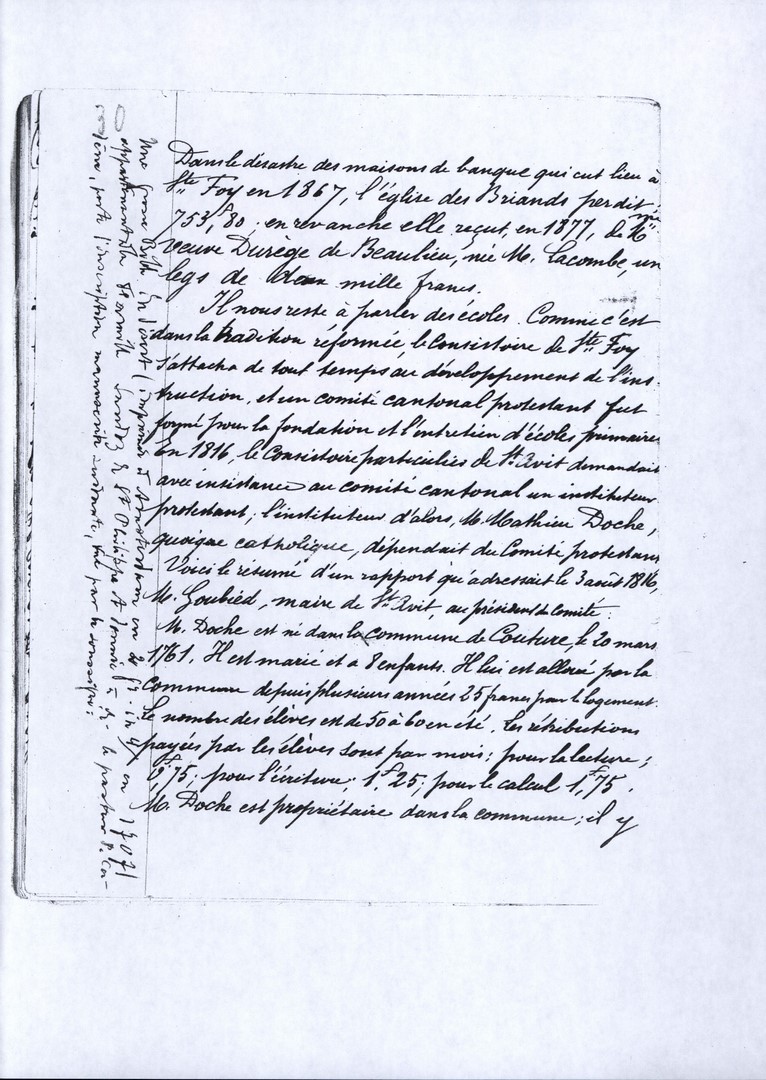 Dans le désastre des maisons de banque qui eut lieu à
Ste Foy en 1867, l'église des Briands perdit
753f,80 ; en revanche elle reçut, en 1877, de Mme
veuve Durège de Beaulieu, née M. Lacombe, un
legs de deux mille francs.
Il nous reste à parler des écoles. Comme c'est
dans la tradition réformée, le Consistoire de Ste Foy
s'attacha de tout temps au développement de l'ins-
truction, et un comité cantonal protestant fut
formé pour la fondation et l'entretien d'écoles primaires
En 1816, le Consistoire particulier de St Avit demandait
avec insistance au comité cantonal un instituteur
protestant ; l'instituteur d'alors, M. Mathieu Doche,
quoique catholique, dépendait du Comité protestant
Voici le résumé d'un rapport qu'adressait le 3 août 1816,
M. Goubied, maire de St Avit, au président du Comité :
M. Doche est né dans la commune de Couture, le 20 mars
1761. Il est marié et a 8 enfants. Il lui est alloué par la
Commune depuis plusieurs années 25 francs pour le logement.
Le nombre des élèves est de 50 à 60 en été. Les rétributions
payées par les élèves sont par mois : pour la lecture ;
0f,75 ; pour l'écriture ; 1f,25 ; pour le calcul 1f,75.
M. Doche est propriétaire dans la commune ; il y
Une grosse Bible (imprimée à Amsterdam en 1707)
appartenant à la famille de St Philippe et donnée le pasteur
porte l'inscription manuscrite suivante,